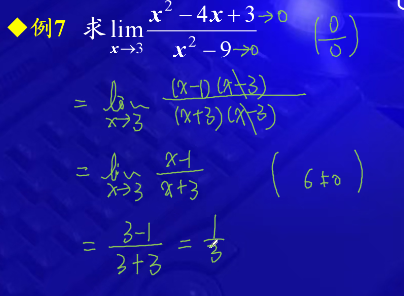 ◆例7 求 lim x→3 (x² − 4x + 3 →0)/(x² − 9 →0) (0/0)
= lim x→3 ((x−1)(x−3))/((x+3)(x−3))
= lim x→3 (x−1)/(x+3) (6≠0)
= (3−1)/(3+3) = 1/3